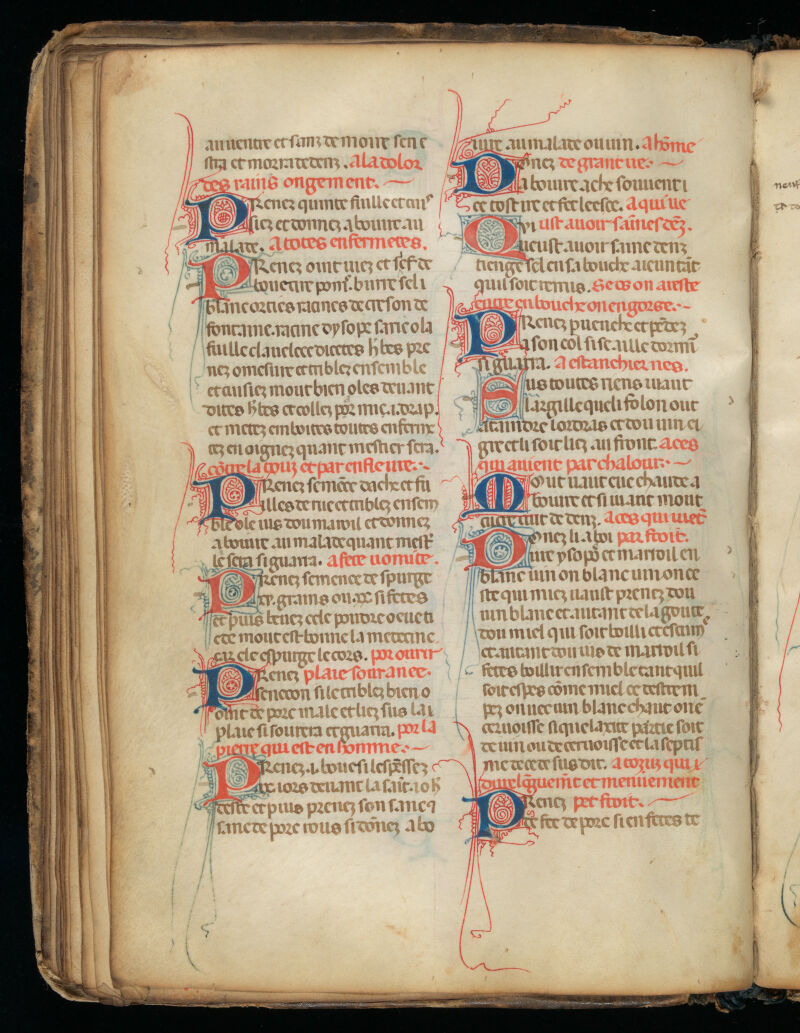 au uentre et sanz demour sen e
stra et morra dedenz. A la dolor
des rains ongement.
Prenez quinte fuille et cui
siez et donnez a bouire au
malade. A totes enfermetes.
Prenez oint uiez et sef de
bouc une pons. burre seli
blanc orties racines de creson de
fontaine. racine dysope sarieola
fuille claucelee dicetes hbes pre
nez omesure et triblez ensemble
et cuisiez mout bien oles deuant
dites hbes et collez por mie .i. drap.
et metez en boites toutes enferme
tez en oignez quant mestier sera.
cotre la gouz et par enfleure.
Prenez semece dache et fu
illes de rue et triblez ensem
ble ole ius dou maroil et donnez
a bouire au malade quant mest
le sera si guarra. a fere uomite.
Prenez semence de spurge
xv. grains ou .xx. si fetes
et puis beuez cele poudre o eue ti
ede mout est bonne la medecine
car ele espurge le cors. por ourir
Prenez plaie soursanee.
senecon si le triblez bien o
oint de porc male et liez sus la i
plaie si sourera et guarra. por la
pierre qui est en homme.
Prenez .i. bouc si lespessez
ix. iors deuant la sait ioh
teste et puis prenez son sanc 7
sanc de porc rous si donez a bo
iure au malade ou uin. A home
Donez de grant ue.
a bouire ache souuent i
ce tost ire et fet leesce. A qui ue
Qui ust auoir saines dez.
Qui eust auoir saine denz
tienge sel en sa bouche aucun tat
quil soit remis. Se es on areste
entre en bouche on en gorge.
Prenez puenche et pedez
a son col si se aille dormi
si guarra. A estanchier nes.
Sus toutes riens uaut
largille queli folon out
ataindre lordras et dou uin ei
gre et li soit liez au front. aces
qui auient par chalour.
Mout uaut eue chaude a
bouire et si uaut mout
cuire cuit de denz. Aces qui uiet
Donez li a boi par froit.
ure ysopo et marroil en
blanc uin on blanc uin on ce
ste qui miez uaust prenez dou
uin blanc et autant de la goute
dou miel qui soit boilli et escum
et autant dou ius de marroil si
fetes boillir ensemble tant quil
soit espes come miel ce destrem
pez on uec uin blanc chaut on e
ceruoisse si que la xite partie soit
de uin ou de ceruoisse et la septis
me de ce de sus dit. a touz qui i
diuelguemt et menuement
Prenez pet froit.
de fee de porc si en fetes de